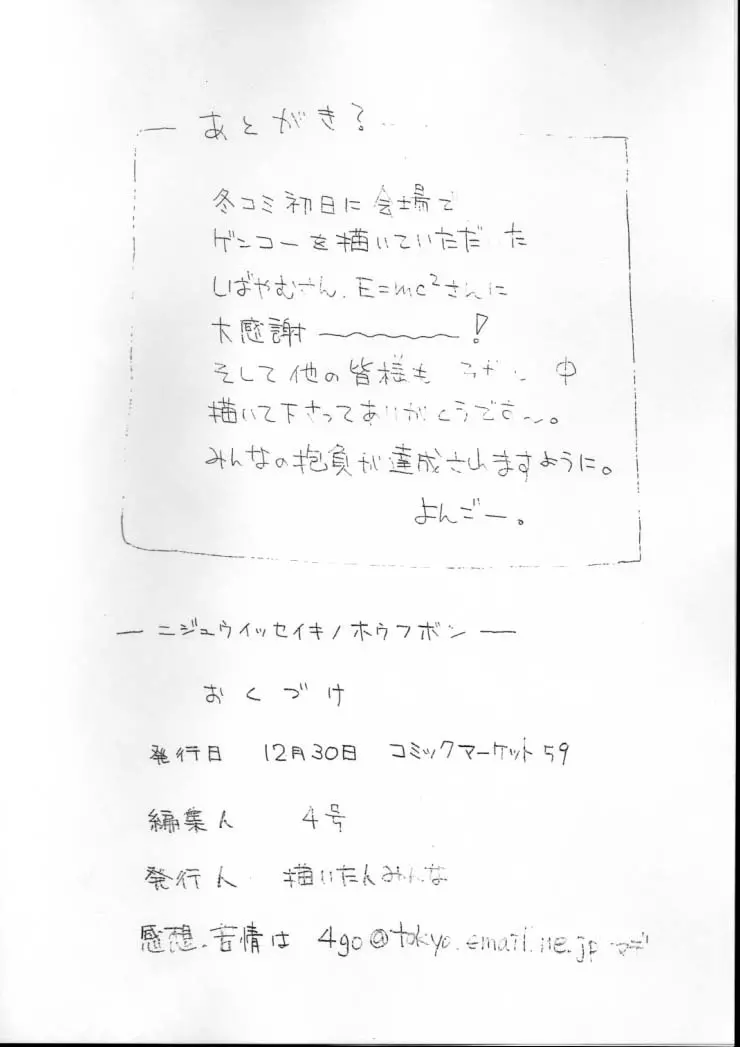 あとがき?
冬コミ初日に会場で
ゲンコーを描いていただ た
しばやむさん、E=mc²さんに
大感謝〜〜〜!
そして他の皆様も 中
描いて下さってありがとうです〜。
みんなの抱負が達成されますように。
よんごー。
― ニジュウイッセイキノホウフボン ―
おくづけ
発行日 12月30日 コミックマーケット59
編集人 4号
発行人 描いたんみんな
感想、苦情は 4go@tokyo.email.ne.jp マデ